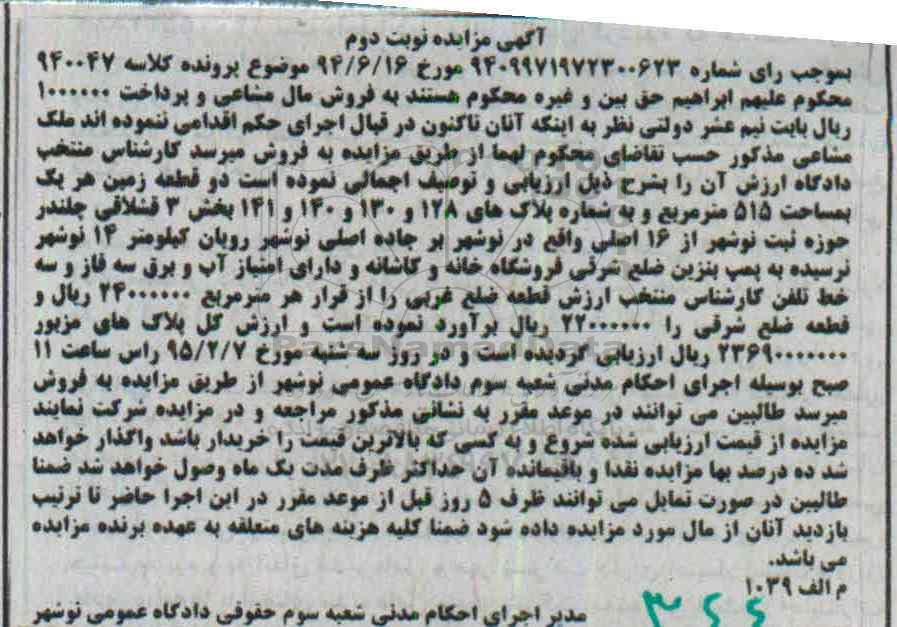 آگهی مزایده نوبت دوم
بموجب رای شماره ۹۴۰۹۹۷۱۹۷۲۳۰۰۶۲۳ مورخ ۹۴/۶/۱۶ موضوع پرونده کلاسه ۹۴۰۰۴۷
محکوم علیهم ابراهیم حق بین و غیره محکوم هستند به فروش مال مشاعی و پرداخت ۱۰۰۰۰۰۰
ریال بابت نیم عشر دولتی نظر به اینکه آنان تاکنون در قبال اجرای حکم اقدامی ننموده اند ملک
مشاعی مذکور حسب تقاضای محکوم لهما از طریق مزایده به فروش میرسد کارشناس منتخب
دادگاه ارزش آن را بشرح ذیل ارزیابی و توصیف اجمالی نموده است دو قطعه زمین هر یک
بمساحت ۵۱۵ مترمربع و به شماره پلاک های ۱۲۸ و ۱۳۰ و ۱۴۰ و ۱۴۱ بخش ۳ قشلاقی چلندر
حوزه ثبت نوشهر از ۱۶ اصلی واقع در نوشهر بر جاده اصلی نوشهر رویان کیلومتر ۱۴ نوشهر
نرسیده به پمپ بنزین ضلع شرقی فروشگاه خانه و کاشانه و دارای امتیاز آب و برق سه فاز و سه
خط تلفن کارشناس منتخب ارزش قطعه ضلع غربی را از قرار هر مترمربع ۲۴۰۰۰۰۰۰ ریال و
قطعه ضلع شرقی را ۲۲۰۰۰۰۰۰ ریال برآورد نموده است و ارزش کل پلاک های مزبور
۲۳۶۹۰۰۰۰۰۰۰ ریال ارزیابی گردیده است و در روز سه شنبه مورخ ۹۵/۲/۷ راس ساعت ۱۱
صبح بوسیله اجرای احکام مدنی شعبه سوم دادگاه عمومی نوشهر از طریق مزایده به فروش
میرسد طالبین می توانند در موعد مقرر به نشانی مذکور مراجعه و در مزایده شرکت نمایند
مزایده از قیمت ارزیابی شده شروع و به کسی که بالاترین قیمت را خریدار باشد واگذار خواهد
شد ده درصد بها مزایده نقدا و باقیمانده آن حداکثر ظرف مدت یک ماه وصول خواهد شد ضمنا
طالبین در صورت تمایل می توانند ظرف ۵ روز قبل از موعد مقرر در این اجرا حاضر تا ترتیب
بازدید آنان از مال مورد مزایده داده شود ضمنا کلیه هزینه های متعلقه به عهده برنده مزایده
می باشد.
م الف ۱۰۳۹
مدیر اجرای احکام مدنی شعبه سوم حقوقی دادگاه عمومی نوشهر
ParsNamadData